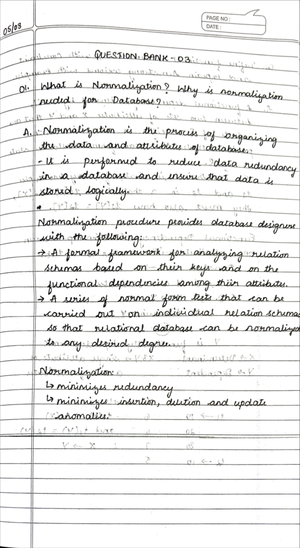 PAGE NO:
DATE:
05/03
QUESTION BANK - 03
Q1. What is Normalization? Why is normalization
needed for Database?
A. Normalization is the process of organizing
the data and attribute of database.
- It is performed to reduce data redundancy
in a database and ensure that data is
stored logically.
Normalization procedure provides database designers
with the following:
→ A formal framework for analyzing relation
schemas based on their keys and on the
functional dependencies among their attributes.
→ A series of normal form tests that can be
carried out on individual relation schemas
so that relational database can be normalized
to any desired degree.
Normalization:
↳ minimizes redundancy
↳ minimizes insertion, deletion and update
anomalies.